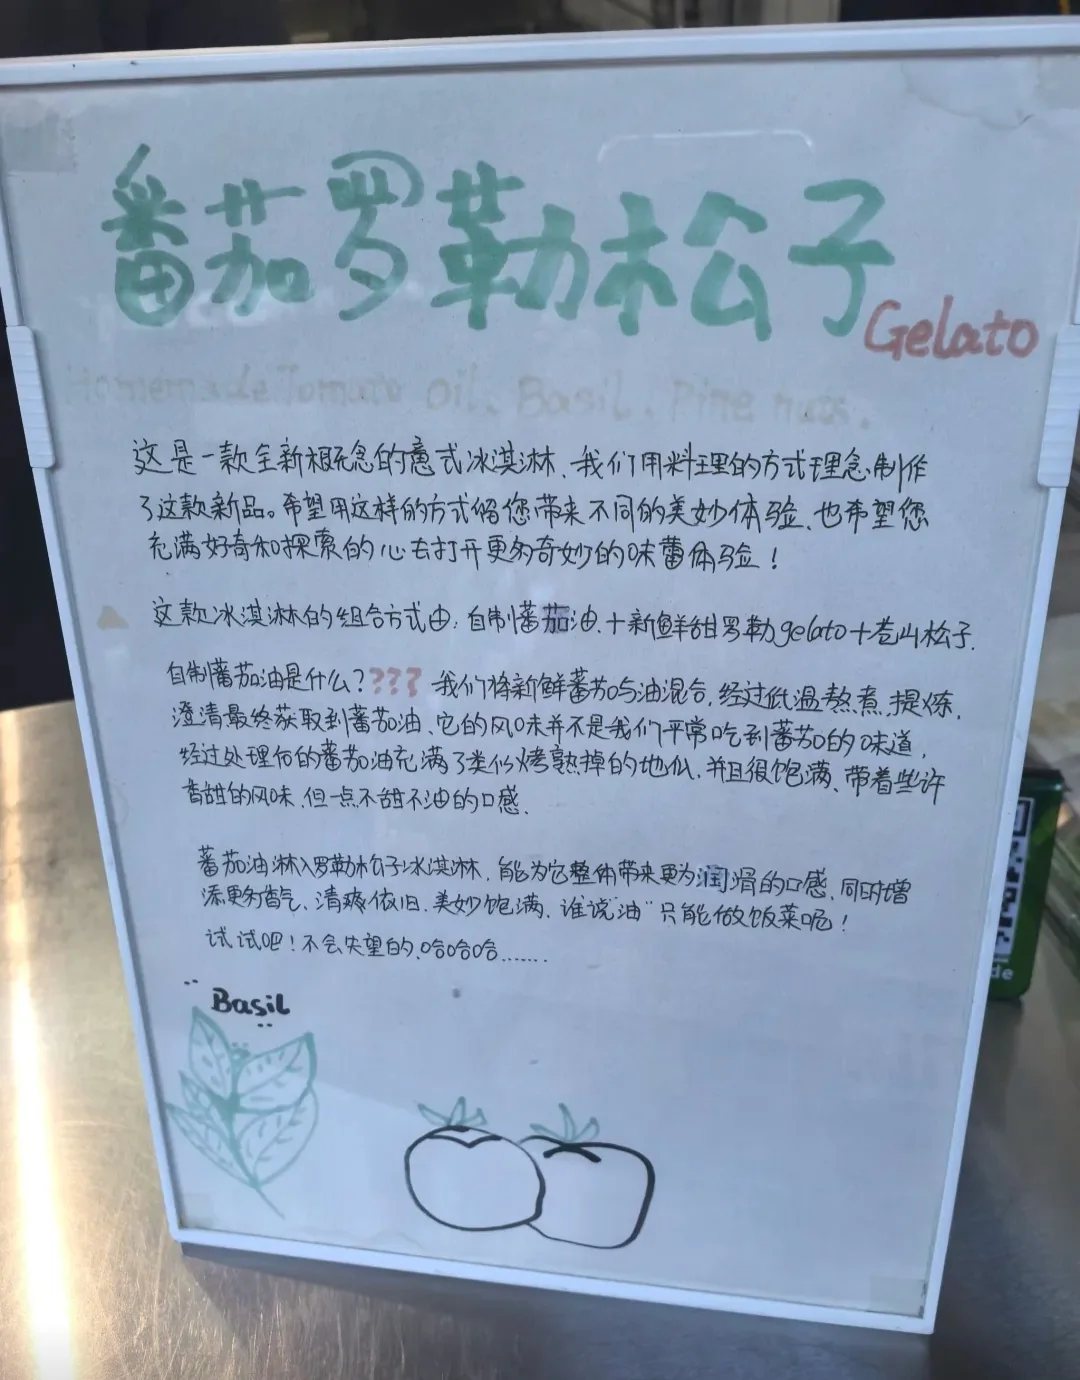 番茄罗勒松子
Gelato
Homemade Tomato oil. Basil. Pine nuts.
这是一款全新概念的意式冰淇淋、我们用料理的方式理念制作
了这款新品。希望用这样的方式能够您带来不同的美妙体验、也希望您
充满好奇和探索的心去打开更多奇妙的味蕾体验！
这款冰淇淋的组合方式由：自制番茄油.+新鲜甜罗勒gelato+苍山松子.
自制蕃茄油是什么？??? 我们将新鲜蕃茄与油混合,经过低温熬煮,提炼,
澄清最终获取到蕃茄油、它的风味并不是我们平常吃到蕃茄的味道,
经过处理后的蕃茄油充满了类似烤熟掉的地瓜,并且很饱满、带着些许
香甜的风味,但一点不甜不油的口感.
蕃茄油淋入罗勒松子冰淇淋,能为它整体带来更为润滑的口感,同时增
添更多香气、清爽依旧、美妙饱满、谁说"油"只能做饭菜呢！
试试吧！不会失望的、哈哈哈.......
Basil
de